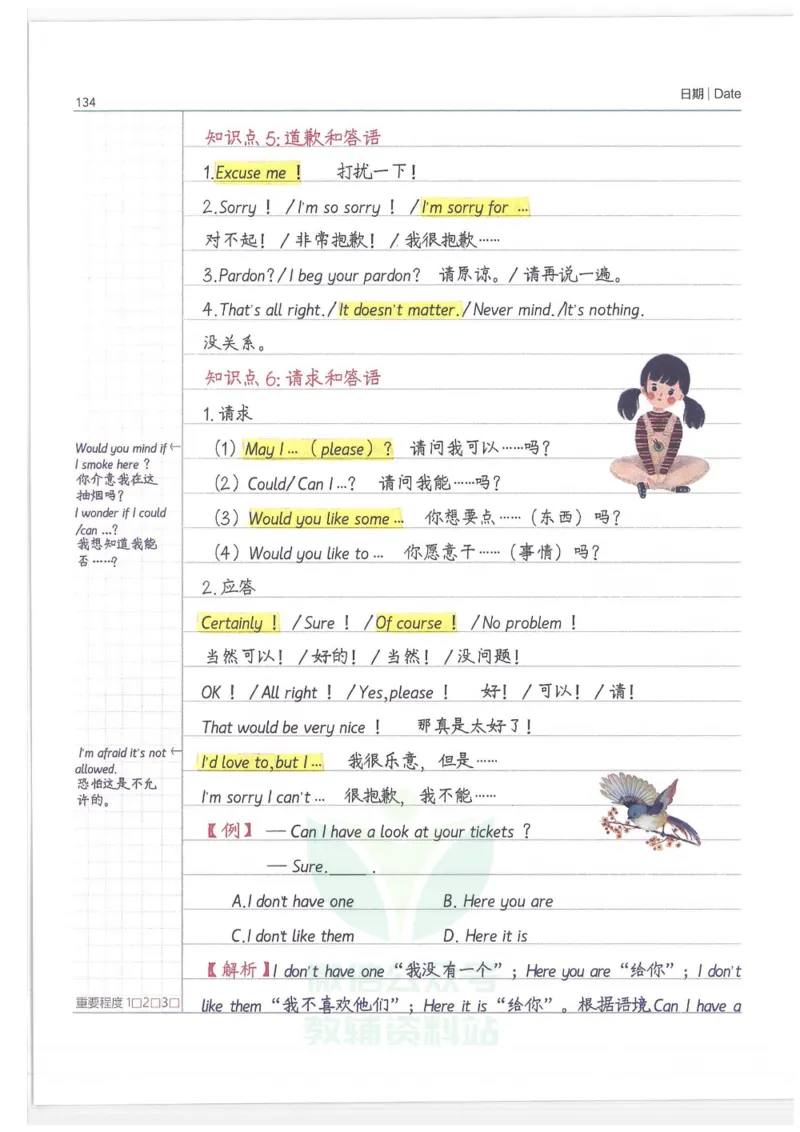 134
日期 | Date
知识点 5:道歉和答语
1.Excuse me ! 打扰一下!
2.Sorry ! /I'm so sorry ! /I'm sorry for …
对不起! / 非常抱歉! / 我很抱歉……
3.Pardon?/I beg your pardon? 请原谅。/ 请再说一遍。
4.That's all right./It doesn't matter./Never mind./It's nothing.
没关系。
知识点 6:请求和答语
1.请求
(1) May I … ( please ) ? 请问我可以……吗?
(2) Could/Can I …? 请问我能……吗?
(3) Would you like some … 你想要点……(东西)吗?
(4) Would you like to … 你愿意干……(事情)吗?
Would you mind if ←
I smoke here ?
你介意我在这
抽烟吗?
I wonder if I could
/can …?
我想知道我能
否……?
2.应答
Certainly ! /Sure ! /Of course ! /No problem !
当然可以! / 好的! / 当然! / 没问题!
OK ! /All right ! /Yes,please ! 好! / 可以! / 请!
That would be very nice ! 那真是太好了!
I'd love to,but I … 我很乐意,但是……
I'm sorry I can't … 很抱歉,我不能……
I'm afraid it's not ←
allowed.
恐怕这是不允
许的。
【例】 — Can I have a look at your tickets ?
— Sure._____ .
A.I don't have one B. Here you are
C.I don't like them D. Here it is
【解析】I don't have one“我没有一个”; Here you are“给你”; I don't
like them“我不喜欢他们”; Here it is“给你”。根据语境 Can I have a
重要程度 1□2□3□
微信公众号
教辅资料站